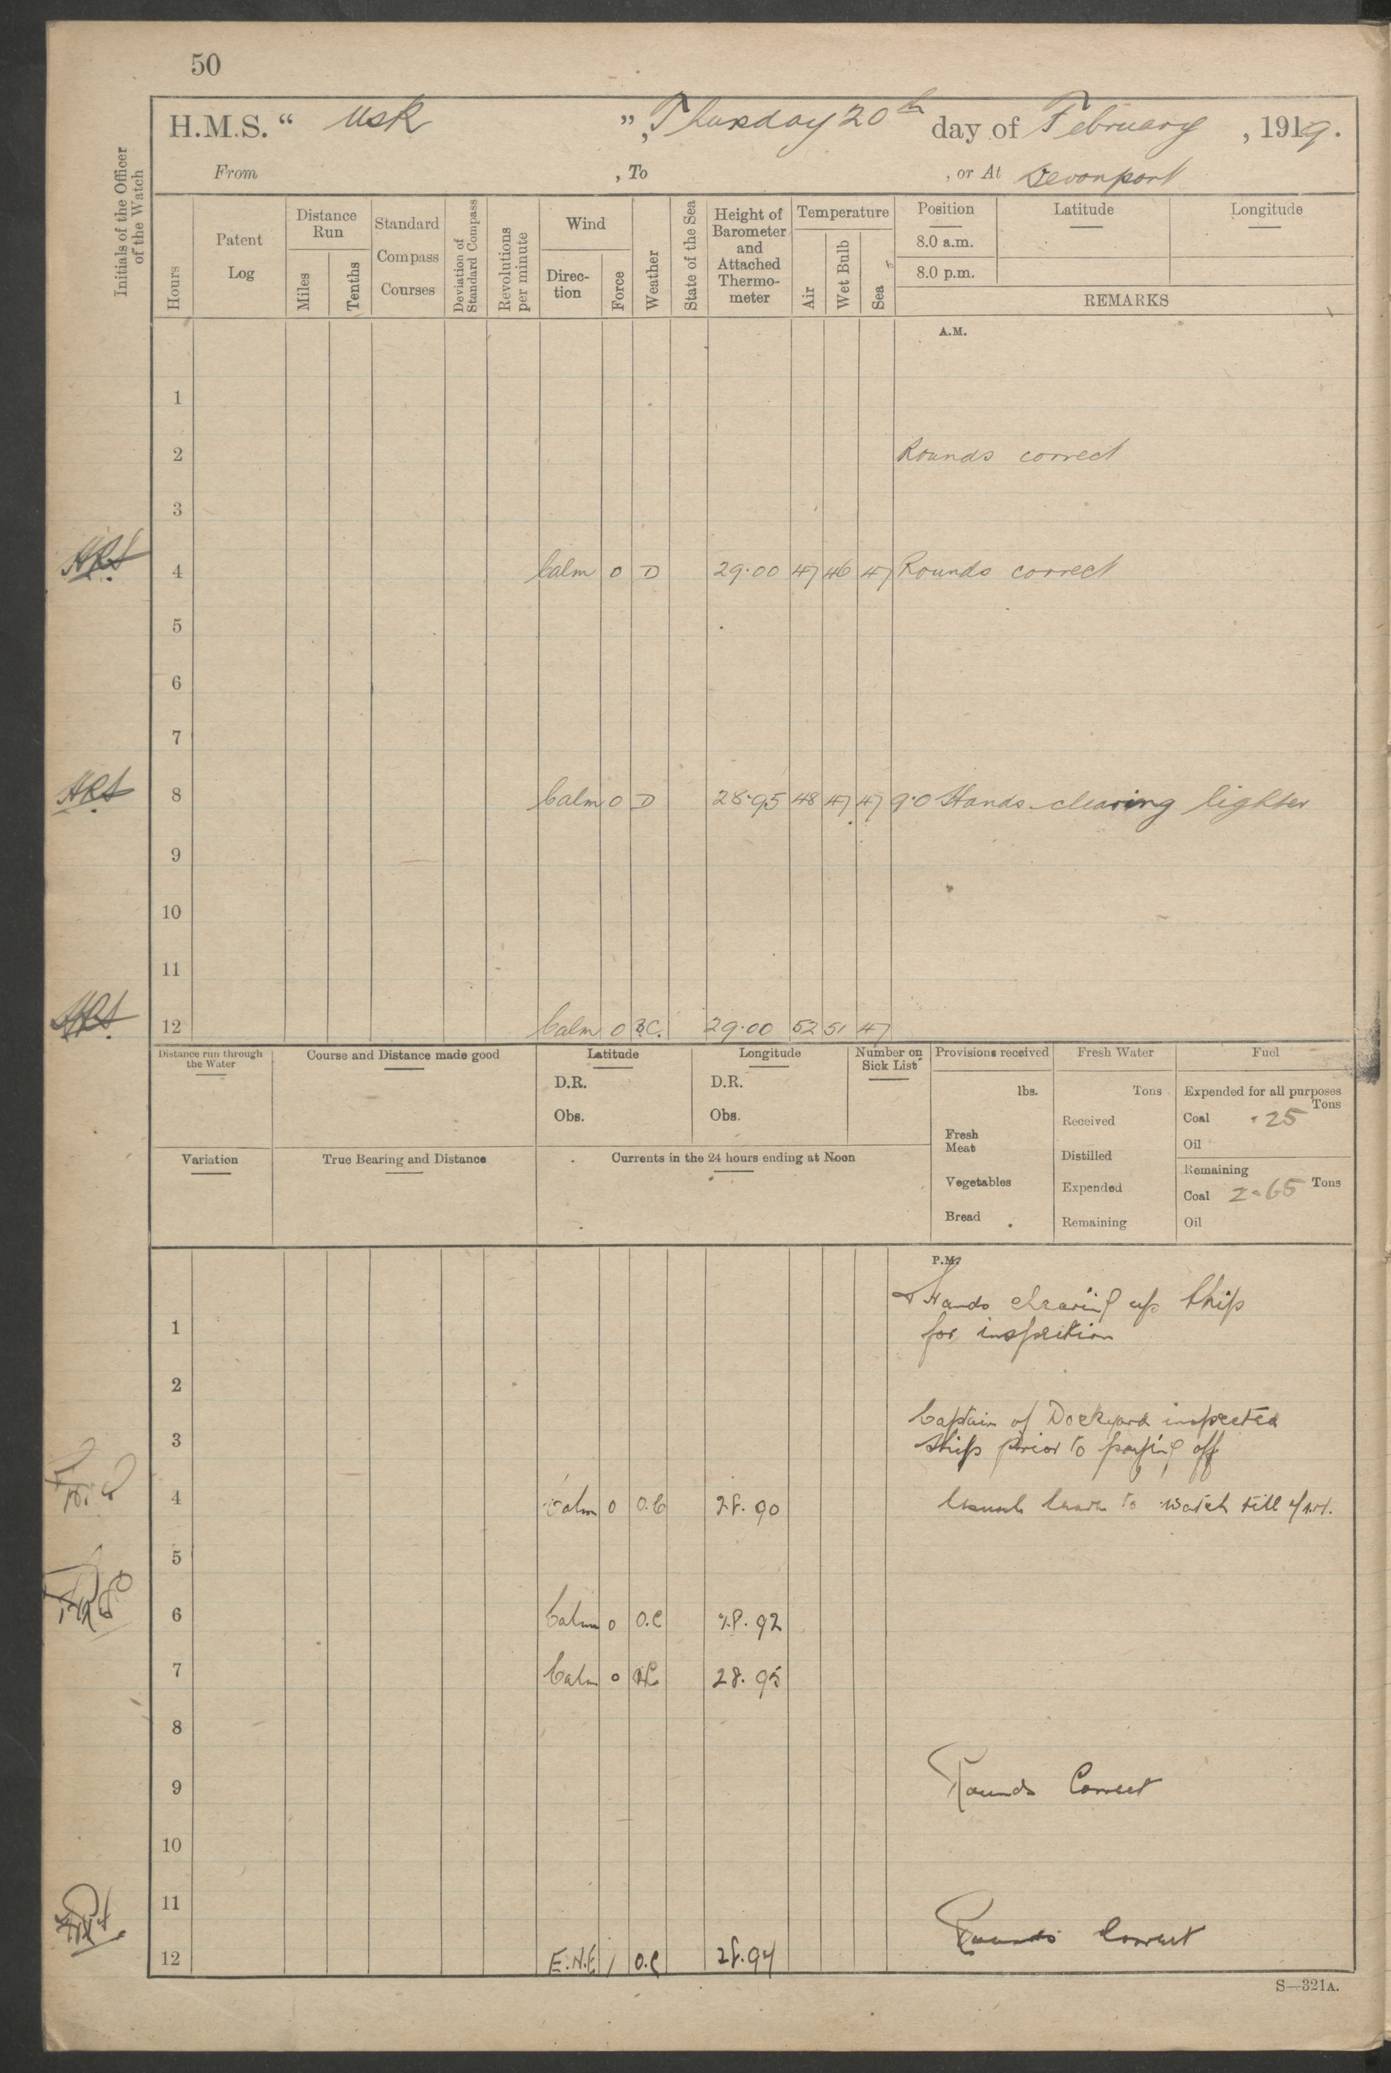 50
H.M.S. “ Usk ”, Thursday 20th day of February , 1919.
From , To , or At Devonport
Initials of the Officer of the Watch
Hours
Patent Log
Distance Run
Miles
Tenths
Standard Compass Courses
Deviation of Standard Compass
Revolutions per minute
Wind
Direc-tion
Force
Weather
State of the Sea
Height of Barometer and Attached Thermo-meter
Temperature
Air
Wet Bulb
Sea
Position Latitude Longitude
8.0 a.m.
8.0 p.m.
REMARKS
A.M.
1
2 Rounds correct
3
4 Calm 0 D 29.00 47 46 47 Rounds correct
5
6
7
8 Calm 0 D 28.95 48 47 47 9.0 Hands clearing lighter
9
10
11
12 Calm 0 B.C. 29.00 52 51 47
Distance run through the Water
Course and Distance made good
Latitude
D.R.
Obs.
Longitude
D.R.
Obs.
Number on Sick List
Provisions received
lbs.
Fresh Meat
Vegetables
Bread
Fresh Water
Tons
Received
Distilled
Expended
Remaining
Fuel
Expended for all purposes
Tons
Coal .25
Oil
Remaining
Coal 2.65 Tons
Oil
Variation
True Bearing and Distance
Currents in the 24 hours ending at Noon
P.M.
Hands clearing up ship
1 for inspection
2
Captain of Dockyard inspected
3 ship prior to paying off
4 Calm 0 O.C 28.90 Usual leave to watch till
5
6 Calm 0 O.C 28.92
7 Calm 0 28.95
8
9 Rounds Correct
10
11
Rounds Correct
12 E.N.E 1 O.C 28.94
S—321A.